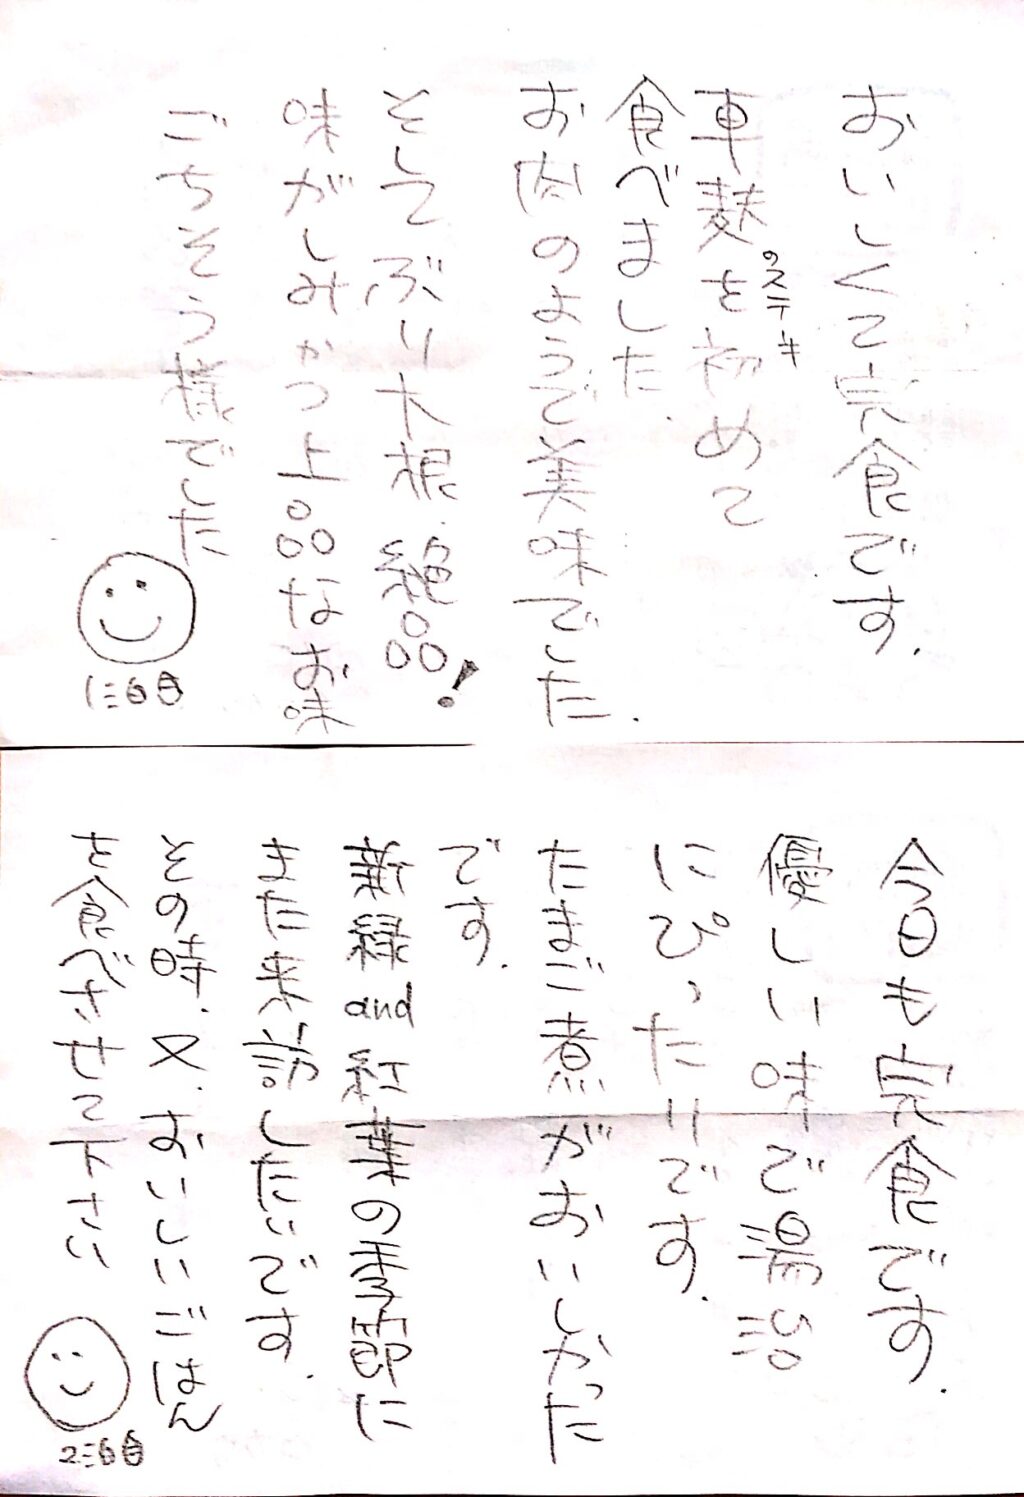 おいしくて完食です.
車麩のステーキを初めて
食べました.
お肉のようで美味でした.
そしてぶり大根.絶品!
味がしみかつ上品なお味
ごちそう様でした
1泊目
今日も完食です.
優しい味で湯治
にぴったりです.
たまご煮がおいしかった
です.
新緑and紅葉の季節に
また来訪したいです.
その時.又.おいしいごはん
を食べさせて下さい
2泊目